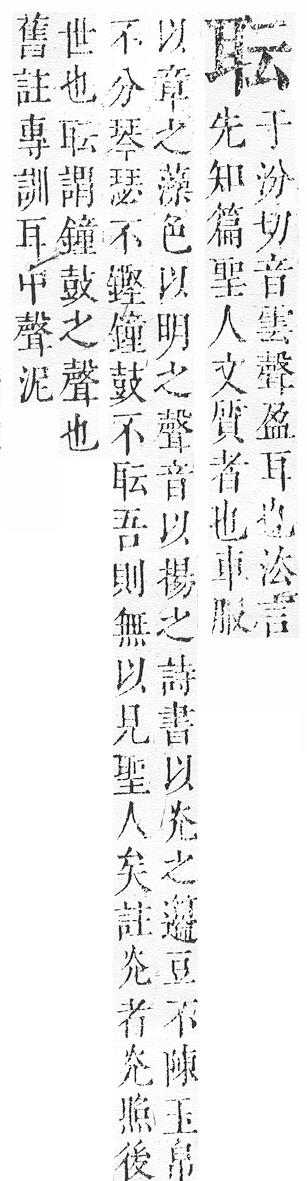 耺
于汾切音雲聲盈耳也法言
先知篇聖人文質者也車服
以章之藻色以明之聲音以揚之詩書以光之籩豆不陳玉帛
不分琴瑟不鏗鐘鼓不耺吾則無以見聖人矣註光者光照後
世也耺謂鐘鼓之聲也
舊註專訓耳中聲泥